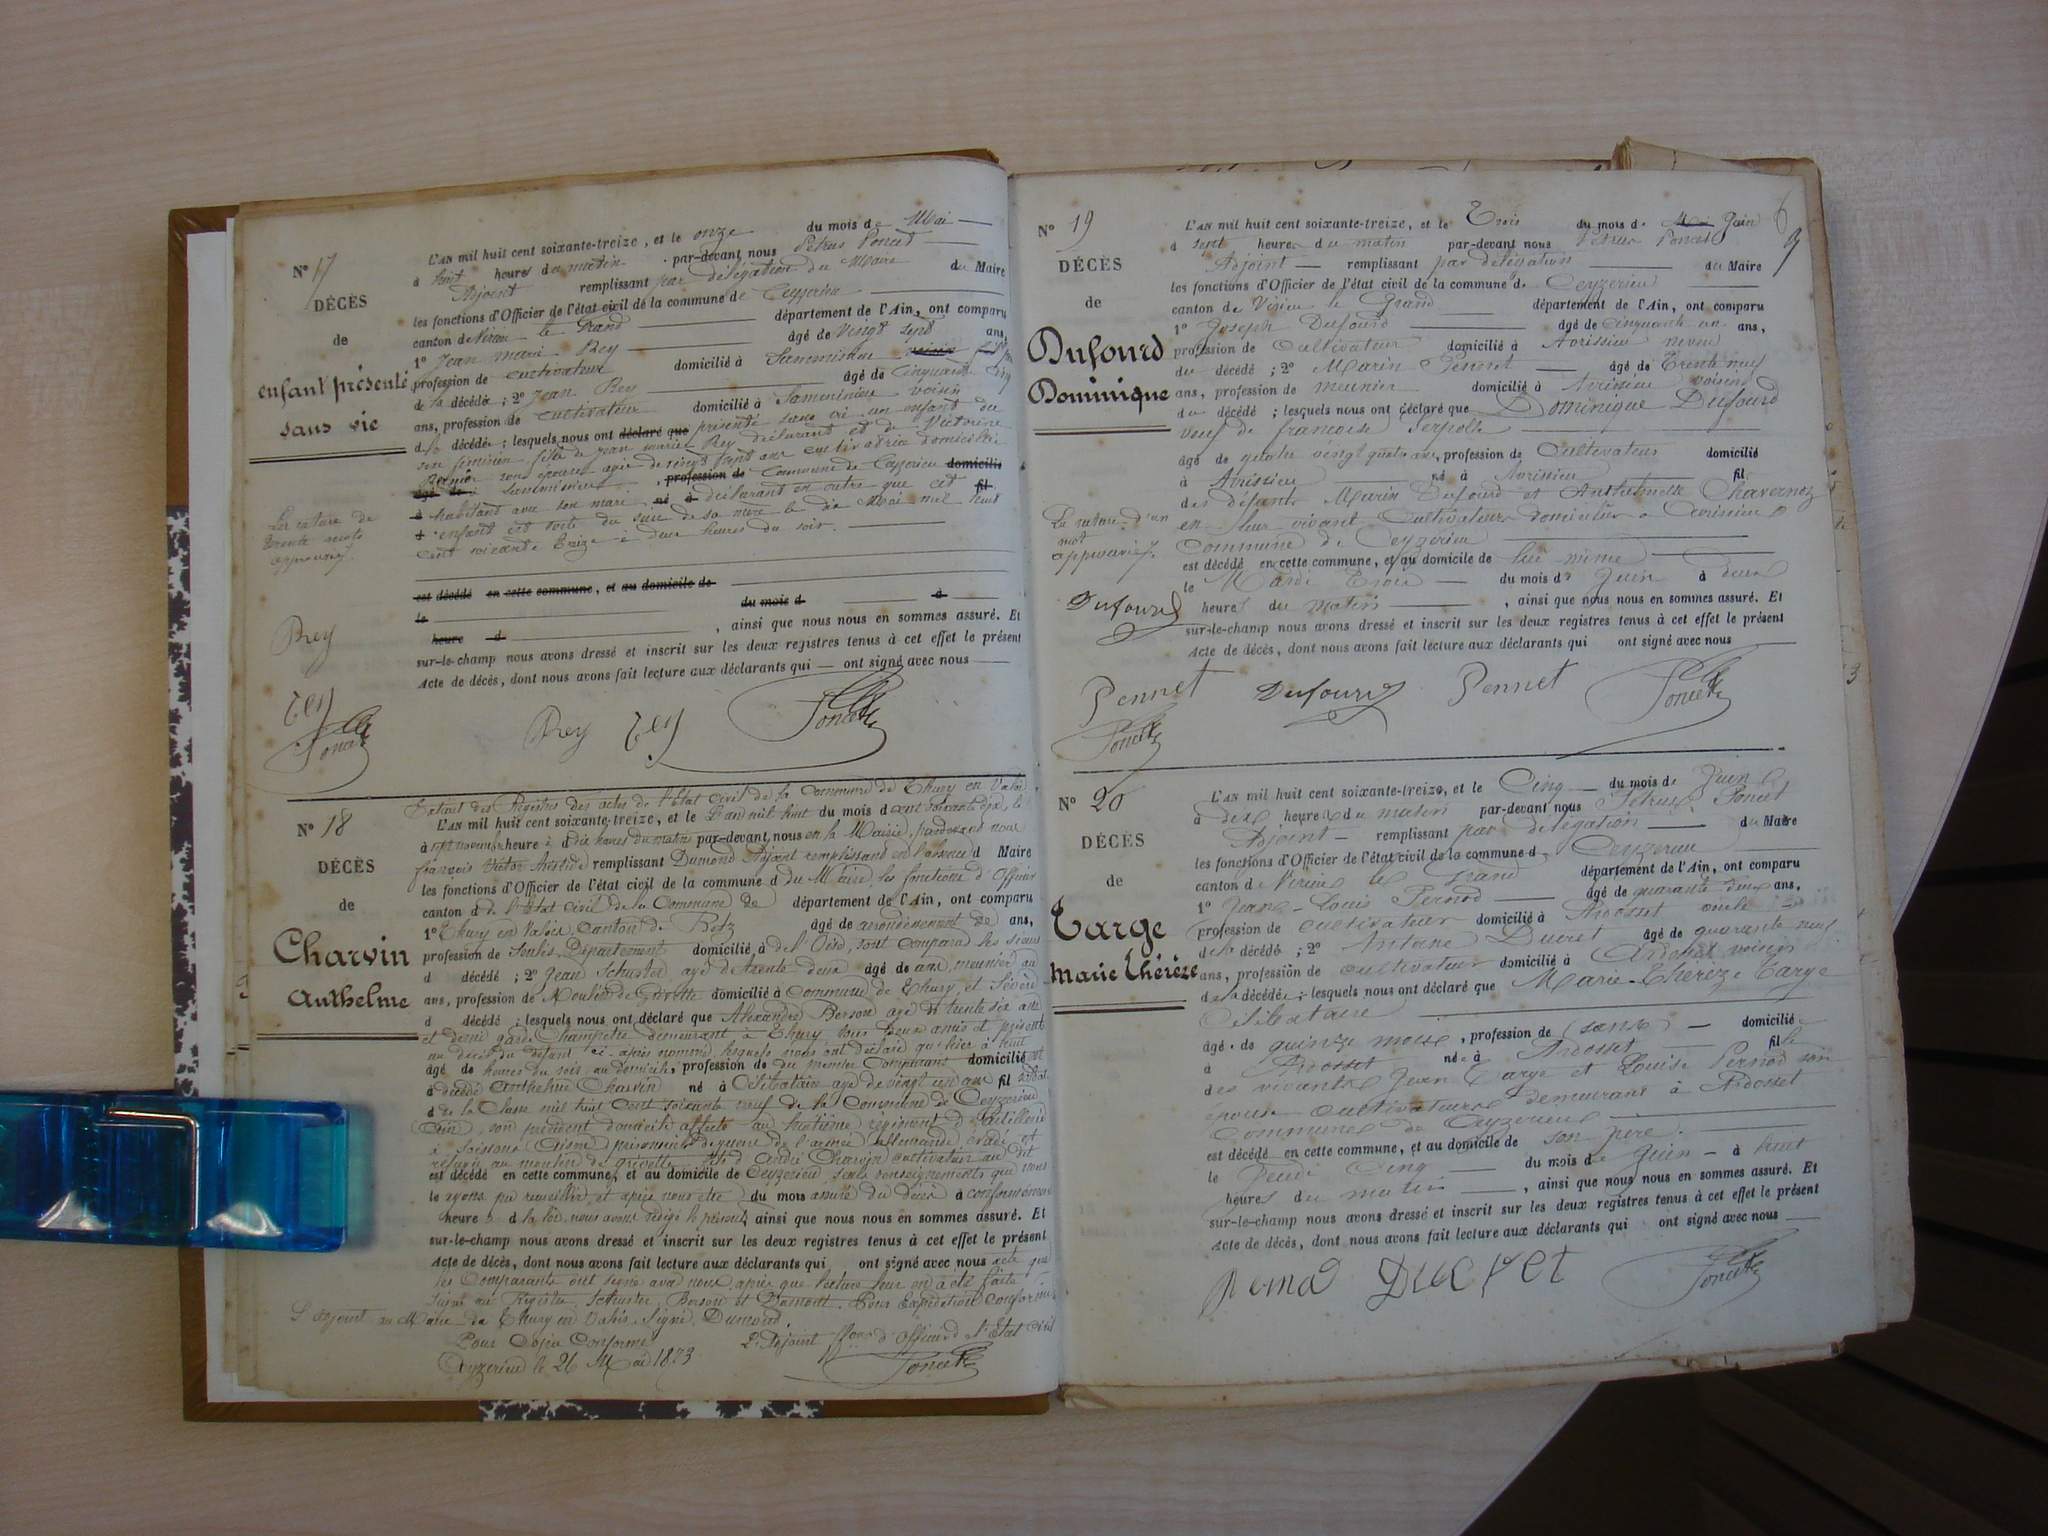 N° 17
DÉCÈS
de
enfant présenté
sans vie
L'AN mil huit cent soixante-treize, et le onze du mois de Mai
à huit heures du matin par-devant nous Pétrus Poncet
Adjoint remplissant par délégation du Maire du Maire
les fonctions d'Officier de l'état civil de la commune de Ceyzerieu
canton de Virieu le Grand département de l'Ain, ont comparu
1° Jean marie Rey âgé de vingt sept ans,
profession de cultivateur domicilié à Sammissieu
de la décédée ; 2° Jean Rey âgé de cinquante cinq
ans, profession de cultivateur domicilié à Sammissieu voisin
de la décédée ; lesquels nous ont déclaré que présenté sans vie un enfant du
sexe féminin fille de jean marie Rey déclarant et de Victorine
son épouse agée de vingt ans cultivatrice domiciliée
âgé de Sammissieu, profession de Commune de Ceyzerieu domicilié
à habitant avec son mari, né à déclarant en outre que cet fil
enfant est sorti du sein de sa mère le dix Mai mil huit
cent soixante treize à deux heures du soir.
La rature de
trente mots
approuvée
est décédé en cette commune, et au domicile de
le du mois d à
heure d , ainsi que nous nous en sommes assuré. Et
sur-le-champ nous avons dressé et inscrit sur les deux registres tenus à cet effet le présent
Acte de décès, dont nous avons fait lecture aux déclarants qui — ont signé avec nous
Rey
Rey
Poncet
Rey Rey Poncet
N° 18
DÉCÈS
de
Charvin
Anthelme
Extrait des Registres des actes de l'Etat civil de la Commune de Thury en Valois
L'AN mil huit cent soixante-treize, et le L'an mil huit du mois d cent soixante dix, le
à sept novembre heure à dix heures du matin par-devant nous en la Mairie, pardevant nous
françois Victor Aristide remplissant Dumond Adjoint remplissant en l'absence d Maire
les fonctions d'Officier de l'état civil de la commune d du Maire, les fonctions d'Officier
canton d de l'Etat Civil de la Commune de département de l'Ain, ont comparu
1° Thury en Valois, Canton de Betz âgé de arrondissement de ans,
profession de Senlis, Département domicilié à de l'Oise, sont comparu les sieurs
d décédé ; 2° Jean Schuster agé de trente deux âgé de ans, meunier au
ans, profession de Moulin de domicilié à Commune de Thury, et Sévère
d décédé ; lesquels nous ont déclaré que Alexandre Berson agé de trente six ans
et demi garde Champêtre demeurant à Thury tous deux amis et présents
au décès du défunt ci-après nommé, lesquels nous ont déclaré qu'hier à huit
âgé de heures du soir au domicile, profession de du premier Comparant domicilié est
à décédé Anthelme Charvin né à Célibataire agé de vingt un ans fil soldat
d de la Classe mil huit Cent soixante neuf de la Commune de Ceyzerieu
(Ain), son précédent domicile affecté au huitième régiment d'Artillerie
à Soissons (Aisne) prisonnier de guerre de l'armée Allemande évadé et
refugié au moulin de fils d'André Charvin cultivateur au dit
est décédé en cette commune, et au domicile de Ceyzerieu seuls renseignements que nous
le ayons pu recueillir et après nous être du mois assuré du décès à conformément
heure d la loi nous avons rédigé le présent, ainsi que nous nous en sommes assuré. Et
sur-le-champ nous avons dressé et inscrit sur les deux registres tenus à cet effet le présent
Acte de décès, dont nous avons fait lecture aux déclarants qui ont signé avec nous acte que
les Comparants ont signé avec nous après que lecture leur en a été faite
Signé au Registre, Schuster, Berson et Dumont. Pour Expédition conforme
L'adjoint au Maire de Thury en Valois. Signé, Dumond
Pour Copie Conforme L'Adjoint ffons d'Officier d l'Etat Civil
Ceyzerieu le 26 Mai 1873 Poncet
N° 19
DÉCÈS
de
Dufourd
Dominique
L'AN mil huit cent soixante-treize, et le Trois du mois de Mai Juin
à sept heures du matin par-devant nous Pétrus Poncet
Adjoint remplissant par délégation du Maire
les fonctions d'Officier de l'état civil de la commune de Ceyzerieu
canton de Virieu le Grand département de l'Ain, ont comparu
1° Joseph Dufourd âgé de cinquante un ans,
profession de Cultivateur domicilié à Avrissieu neveu
du décédé ; 2° Marin Pennet âgé de Trente neuf
ans, profession de meunier domicilié à Avrissieu voisin
du décédé ; lesquels nous ont déclaré que Dominique Dufourd
veuf de francoise Serpolle
âgé de quatre vingt quatre ans, profession de Cultivateur domicilié
à Avrissieu né à Avrissieu fil
des défunts Marin Dufourd et Anthelmette Chavernoz
en leur vivant Cultivateurs domiciliés à Avrissieu
Commune de Ceyzerieu
est décédé en cette commune, et au domicile de lui même
le Mardi Trois du mois de Juin à deux
heures du matin, ainsi que nous nous en sommes assuré. Et
sur-le-champ nous avons dressé et inscrit sur les deux registres tenus à cet effet le présent
Acte de décès, dont nous avons fait lecture aux déclarants qui ont signé avec nous
La rature d'un
mot
approuvée
Dufourd
Pennet
Poncet
Dufourd Pennet Poncet
N° 20
DÉCÈS
de
Targe
Marie Thérèze
L'AN mil huit cent soixante-treize, et le Cinq du mois de Juin
à dix heures du matin par-devant nous Pétrus Poncet
Adjoint remplissant par délégation du Maire
les fonctions d'Officier de l'état civil de la commune d Ceyzerieu
canton de Virieu le Grand département de l'Ain, ont comparu
1° Jean-Louis Pernod âgé de quarante deux ans,
profession de cultivateur domicilié à Ardosset oncle
de la décédé ; 2° Antoine Ducret âgé de quarante neuf
ans, profession de cultivateur domicilié à Ardosset voisin
de la décédée ; lesquels nous ont déclaré que Marie-Thérèze Targe
Célibataire
âgé de quinze mois, profession de (sans) domicilié
à Ardosset née à Ardosset fille
des vivants Jean Targe et Louise Pernod son
épouse cultivateurs demeurant à Ardosset
Commune de Ceyzerieu
est décédé en cette commune, et au domicile de son père.
le Jeudi Cinq du mois de Juin à huit
heures du matin, ainsi que nous nous en sommes assuré. Et
sur-le-champ nous avons dressé et inscrit sur les deux registres tenus à cet effet le présent
Acte de décès, dont nous avons fait lecture aux déclarants qui ont signé avec nous
Pernod Ducret Poncet